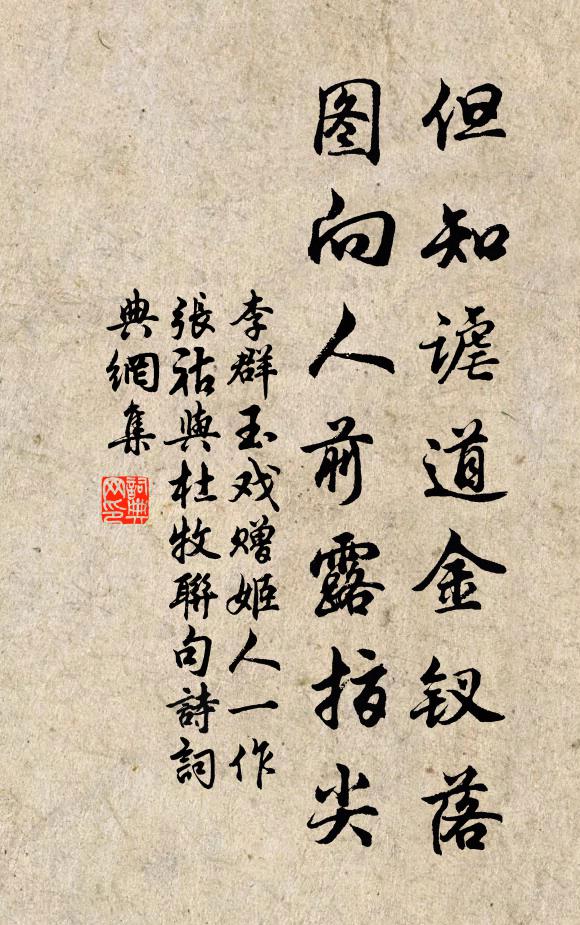 但知谑道金钗落
图向人前露指尖
李群玉戏赠姬人一作
張祜與杜牧聯句詩詞
典網集
詞典
网印